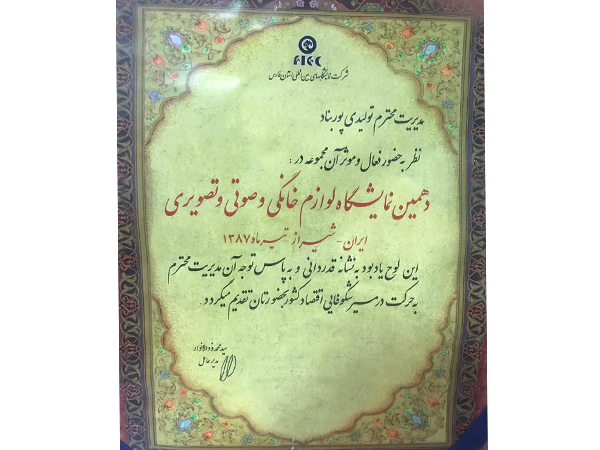 FIEC
شرکت نمایشگاههای بین المللی استان فارس
مدیریت محترم تولیدی پور بناد
نظر به حضور فعال و موثر آن مجموعه در :
دهمین نمایشگاه لوازم خانگی و صوتی و تصویری
ایران - شیراز تیر ماه ۱۳۸۷
این لوح یادبود به نشانه قدردانی و به پاس توجه آن مدیریت محترم
به حرکت در مسیر شکوفایی اقتصاد کشور بحضورتان تقدیم میگردد .
سید محمد
مدیر عامل